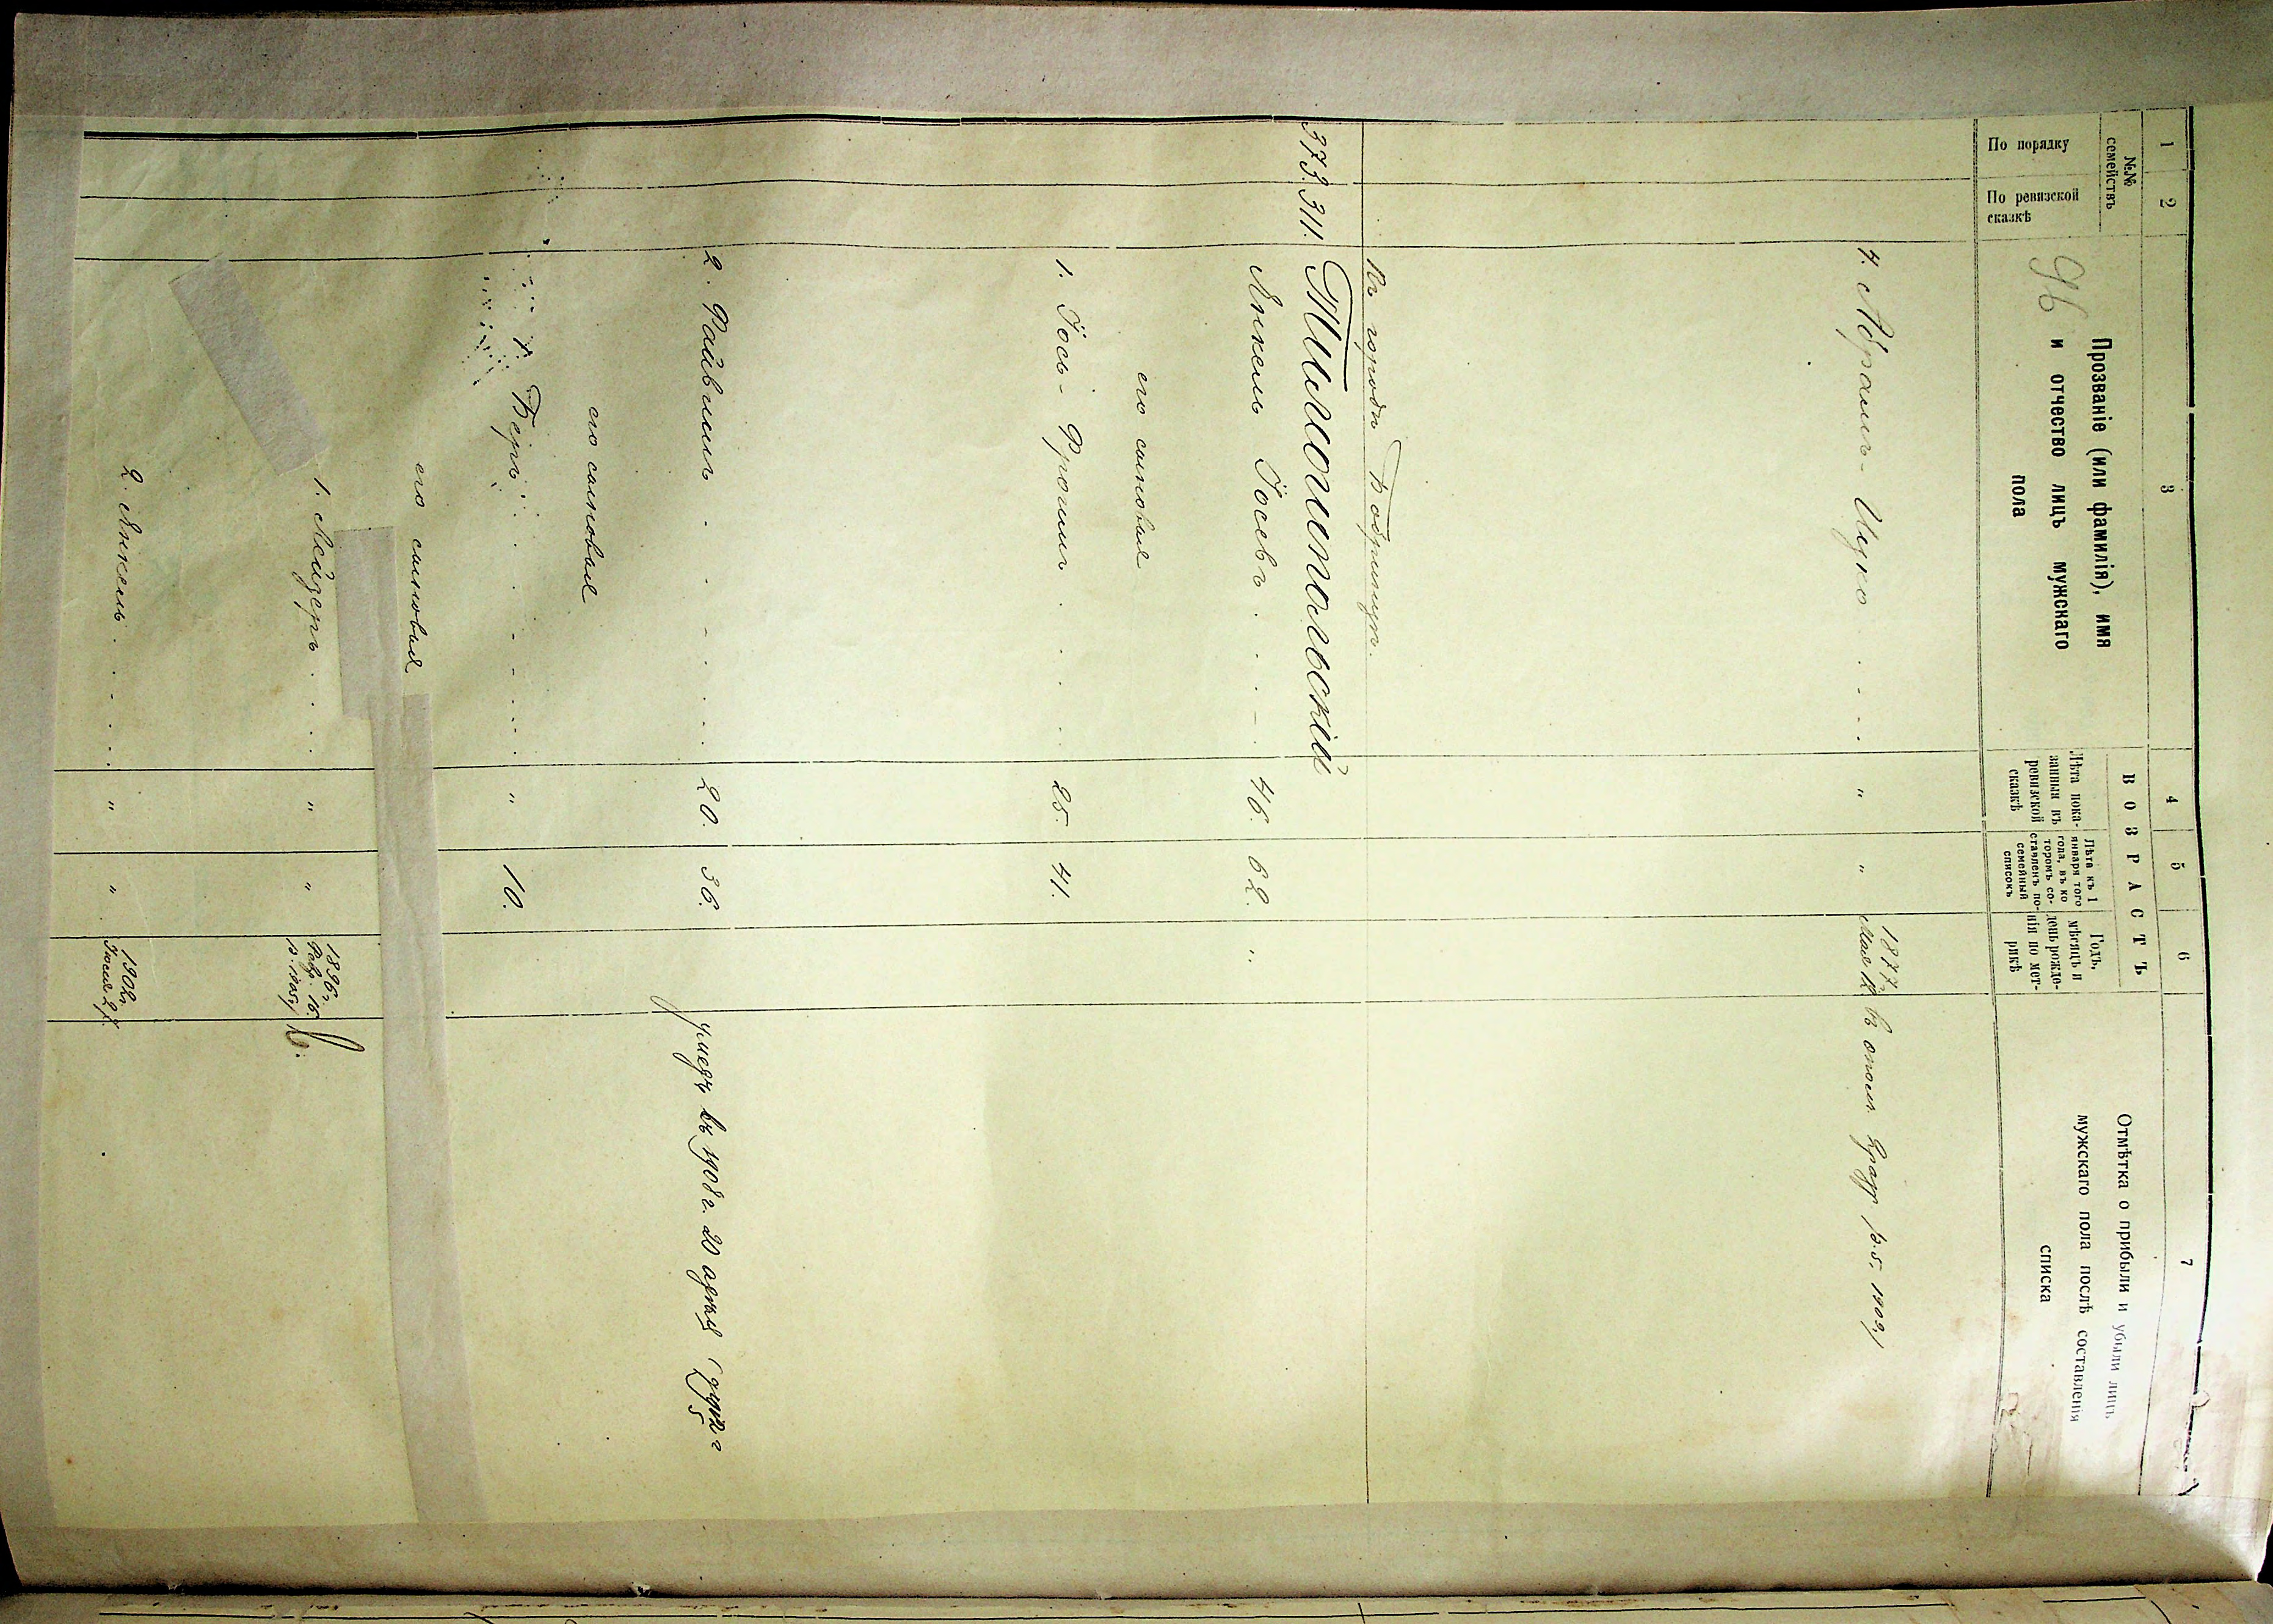 1 2 3 4 5 6 7
№№ семействъ
По порядку
По ревизской сказкѣ
Прозваніе (или фамилія), имя
и отчество лицъ мужскаго
пола
96
ВОЗРАСТЪ
Лѣта пока-
занныя въ
ревизской
сказкѣ
Лѣта къ 1
января того
года, въ ко
торомъ со-
ставленъ по-
семейный
списокъ
Годъ,
мѣсяцъ и
день рожде-
нія по мет-
рикѣ
Отмѣтка о прибыли и убыли лицъ
мужскаго пола послѣ составленія
списка
4. Абрамъ-Ицко " " 1877 г. Мая 12
Въ городѣ Бобринцѣ.
373. 311. Тимопольскій
Янкель Іосевъ 46. 62. "
его сыновья
1. Іось-Фроимъ 25. 41.
2. Файвишъ 20. 36. умеръ въ 1908 г. 20
его сыновья
1. Беръ " 10.
его сыновья
1. Лейзеръ " " 1896 г. Февр. 16
2. Янкель " " 1902 г.